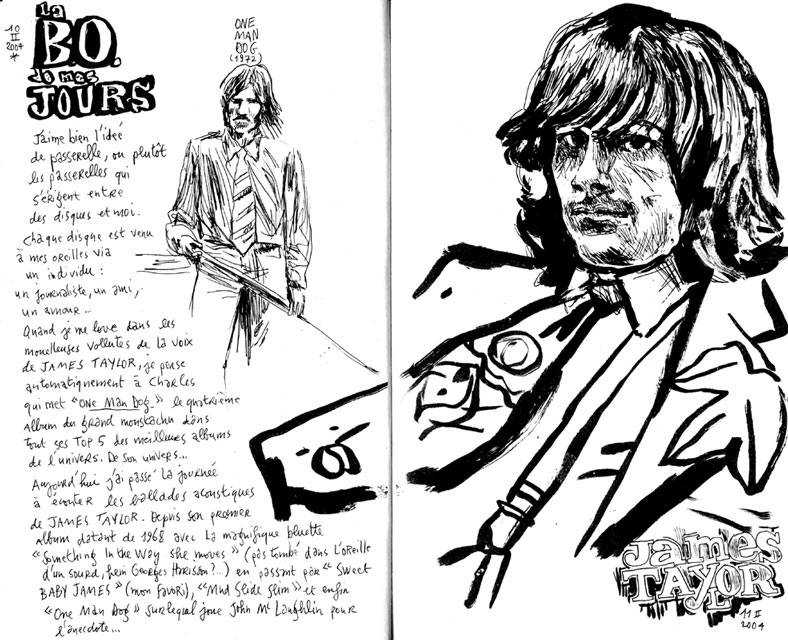 10
II
2004
*
La
B.O.
de mes
JOURS
ONE
MAN
DOG
(1972)
J'aime bien l'idée
de passerelle, ou plutôt
les passerelles qui
s'érigent entre
des disques et moi.
Chaque disque est venu
à mes oreilles via
un individu :
un journaliste, un ami,
un amour...
Quand je me love dans les
moelleuses volutes de la voix
de JAMES TAYLOR, je pense
automatiquement à Charles
qui met "One Man Dog" le quatrième
album du grand moustachu dans
tout ses TOP 5 des meilleurs albums
de l'univers. De son univers...
Aujourd'hui j'ai passé la journée
à écouter les ballades acoustiques
de JAMES TAYLOR. Depuis son premier
album datant de 1968 avec la magnifique bluette
"Something In the Way she moves" (pas tombé dans l'oreille
d'un sourd, hein Georges Harisson ?...) en passant par "Sweet
BABY JAMES" (mon favori), "Mud Slide Slim" et enfin
"One Man Dog" sur lequel joue John Mc Laughlin pour
l'anecdote...
James
TAYLOR
11 II
2004